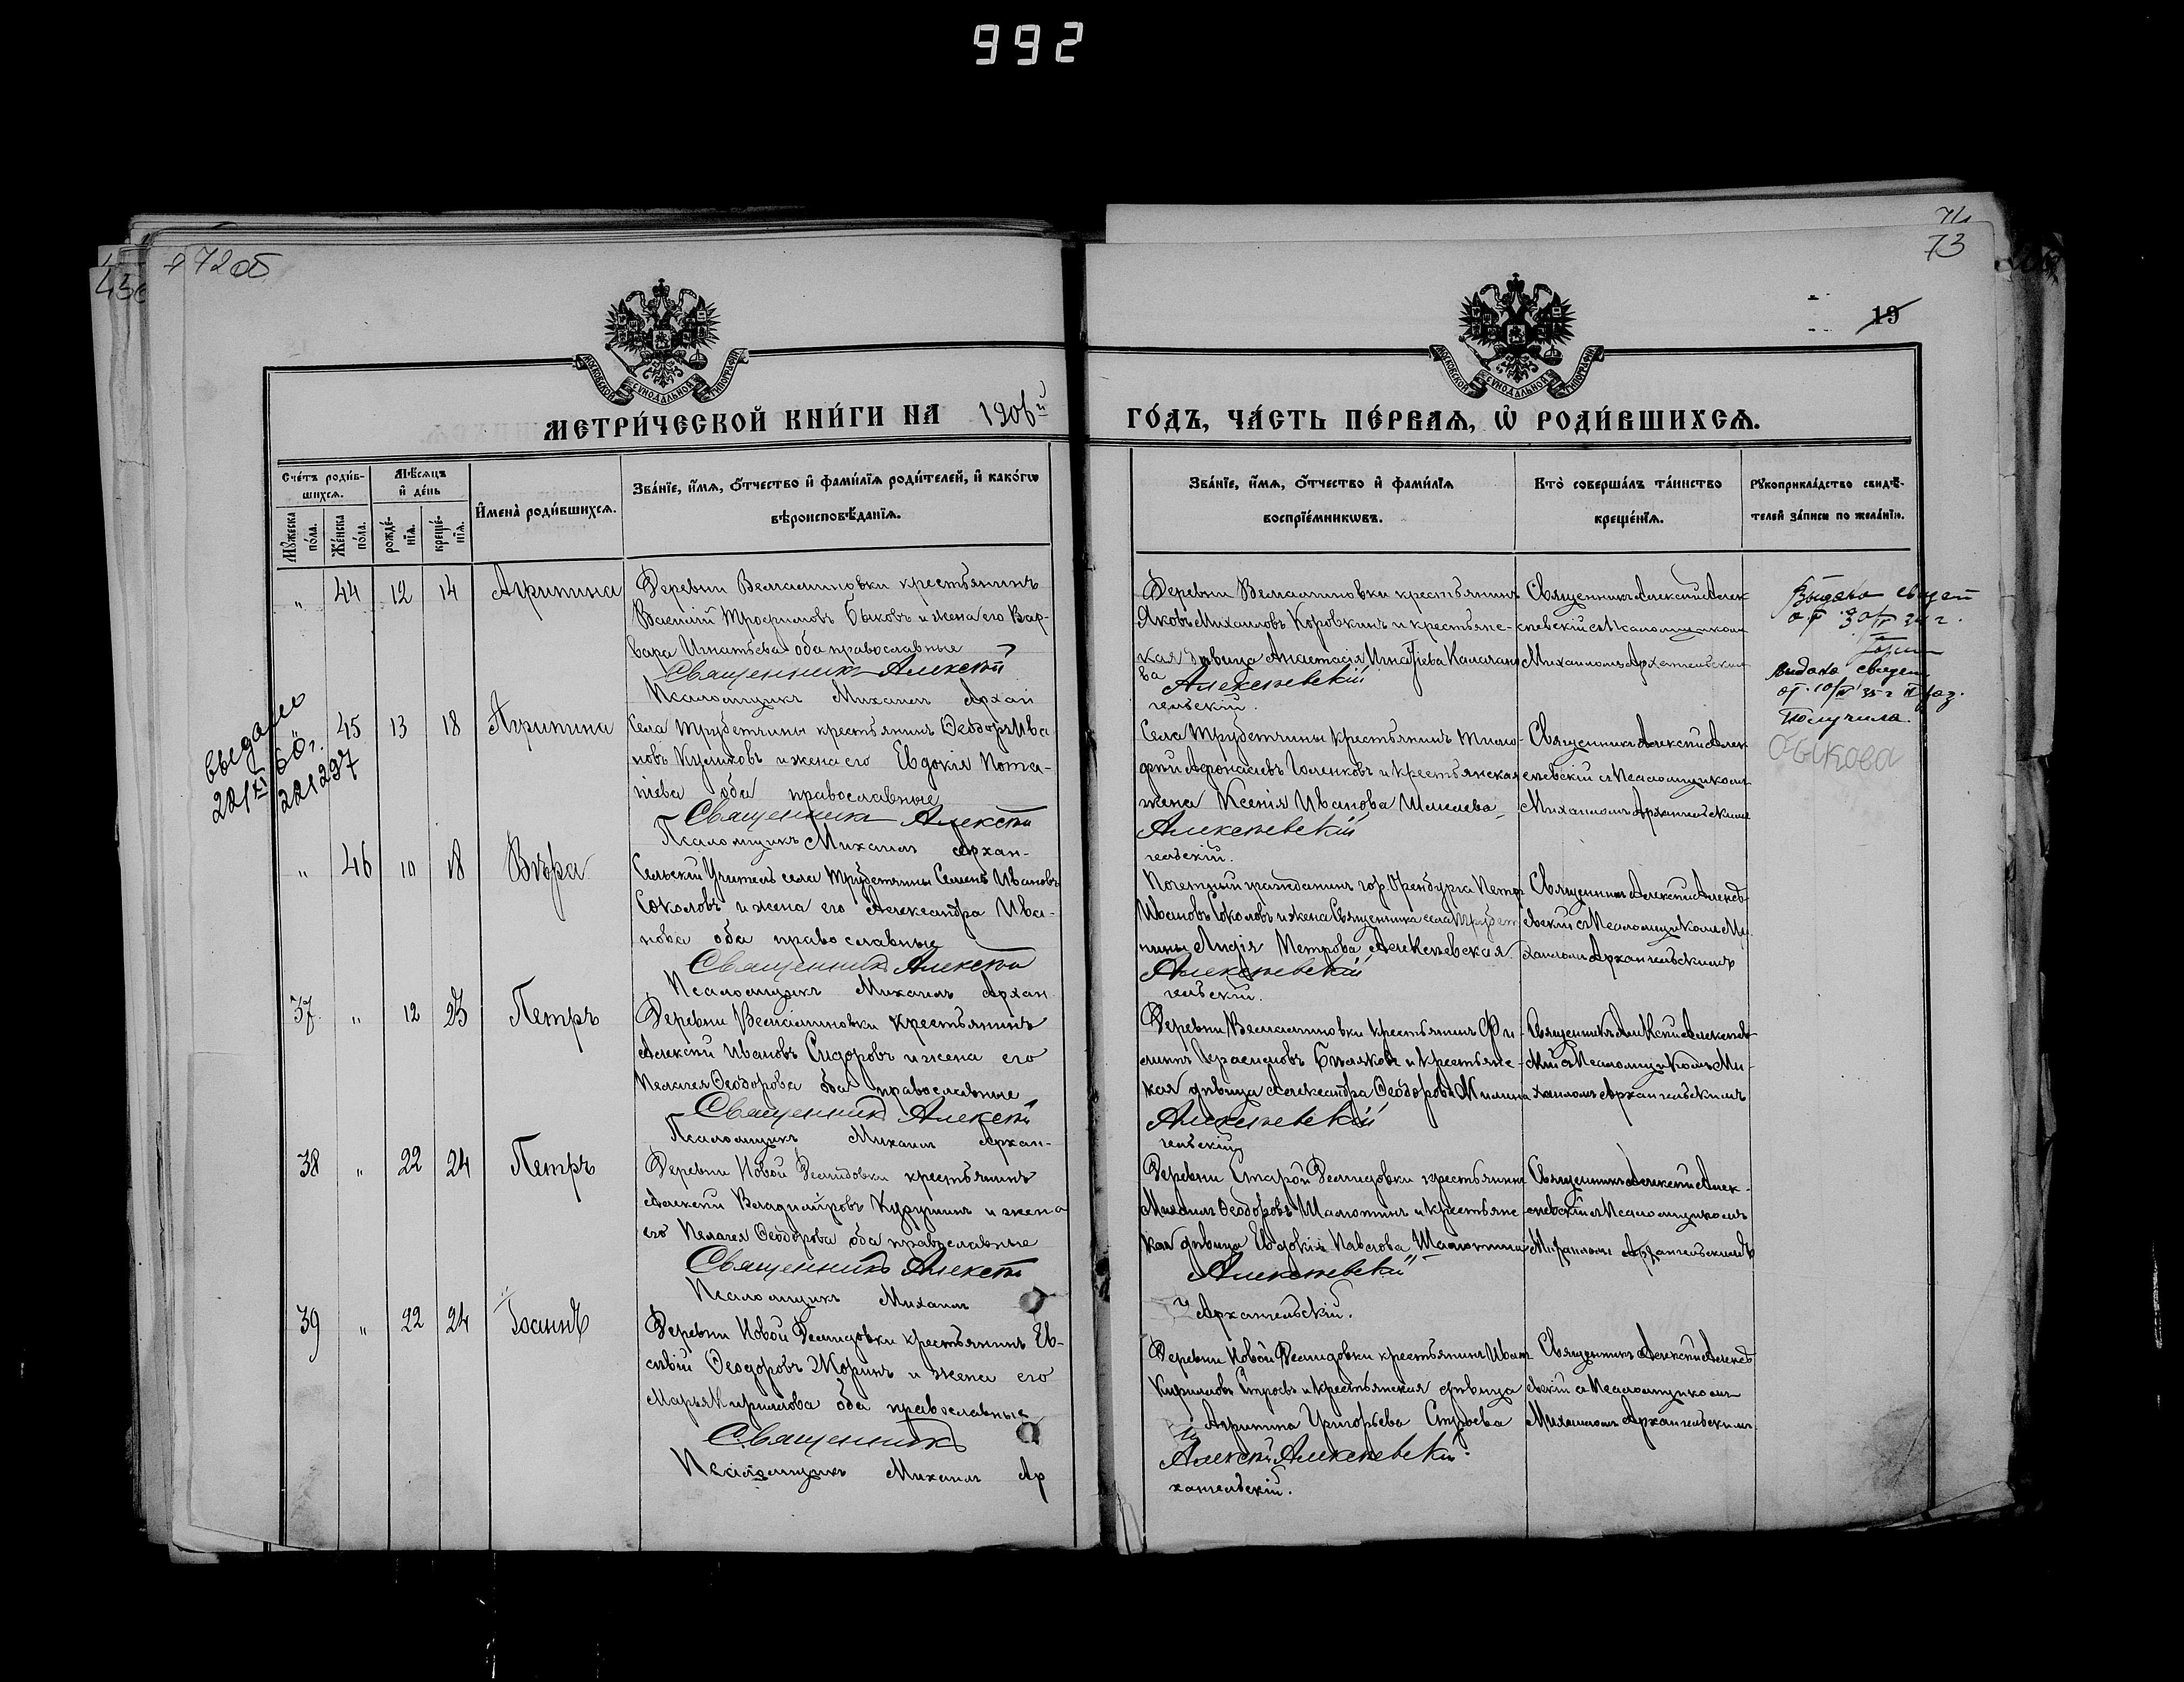 992
72 об
71
73
19
МОСКОВСКОЙ СѴНОДАЛЬНОЙ ТИПОГРАФІИ
МОСКОВСКОЙ СѴНОДАЛЬНОЙ ТИПОГРАФІИ
МЕТРИ́ЧЕСКОЙ КНИ́ГИ НА 1906й ГО́ДЪ, ЧА́СТЬ ПЕ́РВАѦ, Ѡ҆ РОДИ́ВШИХСѦ.
Сче́тъ роди́в-
шихсѧ.
Мꙋ́жеска по́ла.
Же́нска по́ла.
Мѣ́сѧцъ и҆ де́нь
рожде́-нїѧ.
креще́-нїѧ.
И҆мена̀ роди́вшихсѧ.
Зва́нїе, и҆́мѧ, ѻ҆́тчество и҆ фами́лїѧ роди́телей, и҆ како́гѡ
вѣроисповѣ́данїѧ.
Зва́нїе, и҆́мѧ, ѻ҆́тчество и҆ фами́лїѧ
воспрїе́мникѡвъ.
Кто̀ соверша́лъ та́инство
креще́нїѧ.
Рꙋкоприкла́дство свидѣ́-
телей за́писи по жела́нїю.
" 44 12 14 Агрипина
Деревни Вельяминовки крестьянинъ
Василій Трофимовъ Быковъ и жена его Вар-
вара Игнатьева оба православные
Священникъ Алексѣй
Псаломщикъ Михаилъ Архан
Деревни Вельяминовки крестьянинъ
Яковъ Михаиловъ Коровкинъ и крестьянс-
кая дѣвица Анастасія Игнатіева
ва
Алексѣевскій
гельскій.
Священникъ Алексій Алек
сѣевскій съ Псаломщикомъ
Михаиломъ Архангельскимъ
Выдано свидет
Выдано свидет
Получила
Быкова
выдано
221297
45 13 18 Агрипина
Села Трубетчины крестьянинъ Ѳеодоръ Ива
новъ Куликовъ и жена его Евдокія Пота-
піева оба православные
Священникъ Алексѣй
Псаломщикъ Михаилъ Архан-
Села Трубетчины крестьянинъ Тимо-
фей Афонасіевъ Голенковъ и крестьянская
жена Ксенія Иванова
Алексѣевскій
гельскій.
Священникъ Алексій Алек
сѣевскій съ Псаломщикомъ
Михаиломъ Архангельскимъ
" 46 10 18 Вѣра
Сельскій Учитель села Трубетчины Семенъ Ивановъ
Соколовъ и жена его Александра Ива-
нова оба православные
Священникъ Алексѣй
Псаломщикъ Михаилъ Архан
Почетный гражданинъ гор. Оренбурга Петръ
Ивановъ Соколовъ и жена Священника села Трубет
чины Лидія Петрова Алексѣевская
Алексѣевскій
гельскій.
Священникъ Алексій Алексѣ
евскій съ Псаломщикомъ Ми
хаиломъ Архангельскимъ
37 " 12 23 Петръ
Деревни Вельяминовки крестьянинъ
Алексѣй Ивановъ Сидоровъ и жена его
Пелагея Ѳеодорова оба православные
Священникъ Алексѣй
Псаломщикъ Михаилъ Архан-
Деревни Вельяминовки крестьянинъ Фи-
липъ Герасимовъ Бѣляковъ и крестьянс-
кая дѣвица Александра Ѳеодорова Милина
Алексѣевскій
гельскій
Священникъ Алексій Алексѣев
скій съ Псаломщикомъ Ми-
хаиломъ Архангельскимъ
38 " 22 24 Петръ
Деревни Новой Демидовки крестьянинъ
Алексѣй Владиміровъ и жена
его Пелагея Ѳеодорова оба православные
Священникъ Алексѣй
Псаломщикъ Михаилъ
Деревни Старой Демидовки крестьянинъ
Михаилъ Ѳеодоровъ Шалютинъ и крестьянс-
кая дѣвица Евдокія Павлова Шалютина
Алексѣевскій
Архангельскій.
Священникъ Алексій Алек-
сѣевскій съ Псаломщикомъ
Михаиломъ Архангельскимъ
39 " 22 24 Іоаннъ
Деревни Новой Демидовки крестьянинъ Ев-
сѣвій Ѳеодоровъ Жоринъ и жена его
Марья Кириллова оба православные
Священникъ
Псаломщикъ Михаилъ Ар
Деревни Новой Демидовки крестьянинъ Иванъ
Кирилловъ Строевъ и крестьянская дѣвица
Агрипина Григорьева Строева
Алексѣй Алексѣевскій
хангельскій.
Священникъ Алексій Алексѣ
евскій съ Псаломщикомъ
Михаиломъ Архангельскимъ